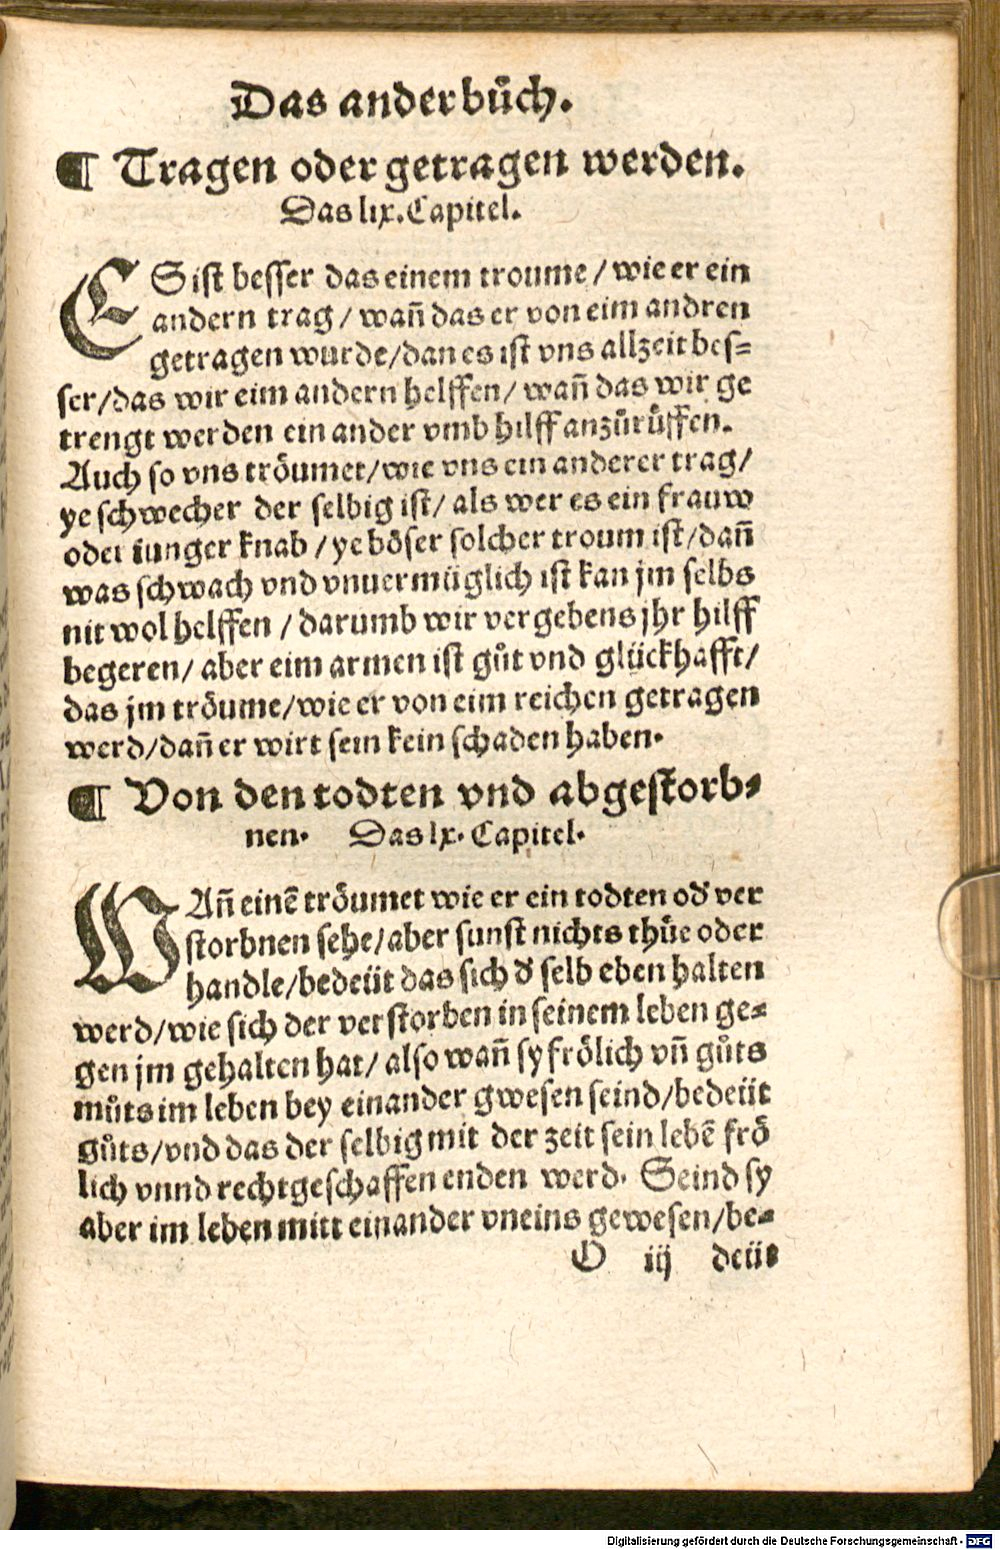 Das ander bůch.
¶ Tragen oder getragen werden.
Das lix. Capitel.
ES ist besser das einem troume / wie er ein
andern trag / wañ das er von eim andren
getragen wurde / dan es ist vns allzeit bes=
ser / das wir eim andern helffen / wañ das wir ge
trengt werden ein ander vmb hilff anzůrůffen.
Auch so vns tröumet / wie vns ein anderer trag /
ye schwecher der selbig ist / als wer es ein frauw
oder iunger knab / ye böser solcher troum ist / dañ
was schwach vnd vnuermüglich ist kan jm selbs
nit wol helffen / darumb wir vergebens jhr hilff
begeren / aber eim armen ist gůt vnd glückhafft /
das jm tröume / wie er von eim reichen getragen
werd / dañ er wirt sein kein schaden haben.
¶ Von den todten vnd abgestorb=
nen. Das lx. Capitel.
WAñ einẽ tröumet wie er ein todten od' ver
storbnen sehe / aber sunst nichts thůe oder
handle / bedeüt das sich d' selb eben halten
werd / wie sich der verstorben in seinem leben ge=
gen jm gehalten hat / also wañ sy frölich vñ gůts
můts im leben bey einander gwesen seind / bedeüt
gůts / vnd das der selbig mit der zeit sein lebẽ frö
lich vnnd rechtgeschaffen enden werd. Seind sy
aber im leben mitt einander vneins gewesen / be=
O iij deü=
Digitalisierung gefördert durch die Deutsche Forschungsgemeinschaft - DFG